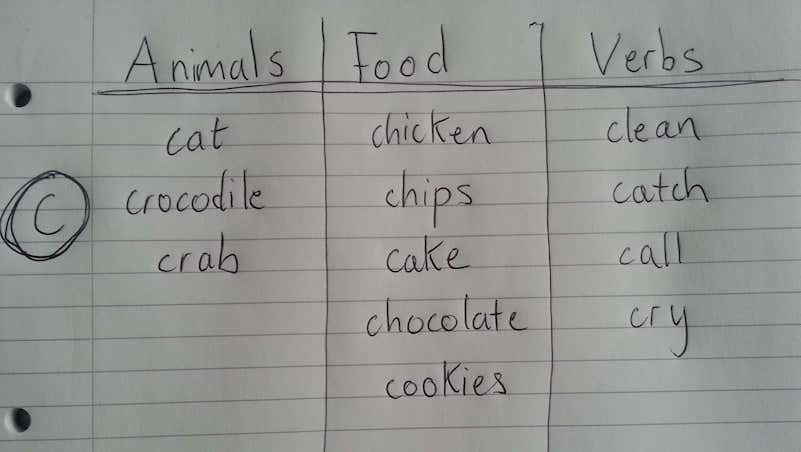 Animals Food Verbs
cat chicken clean
C crocodile chips catch
crab cake call
chocolate cry
cookies